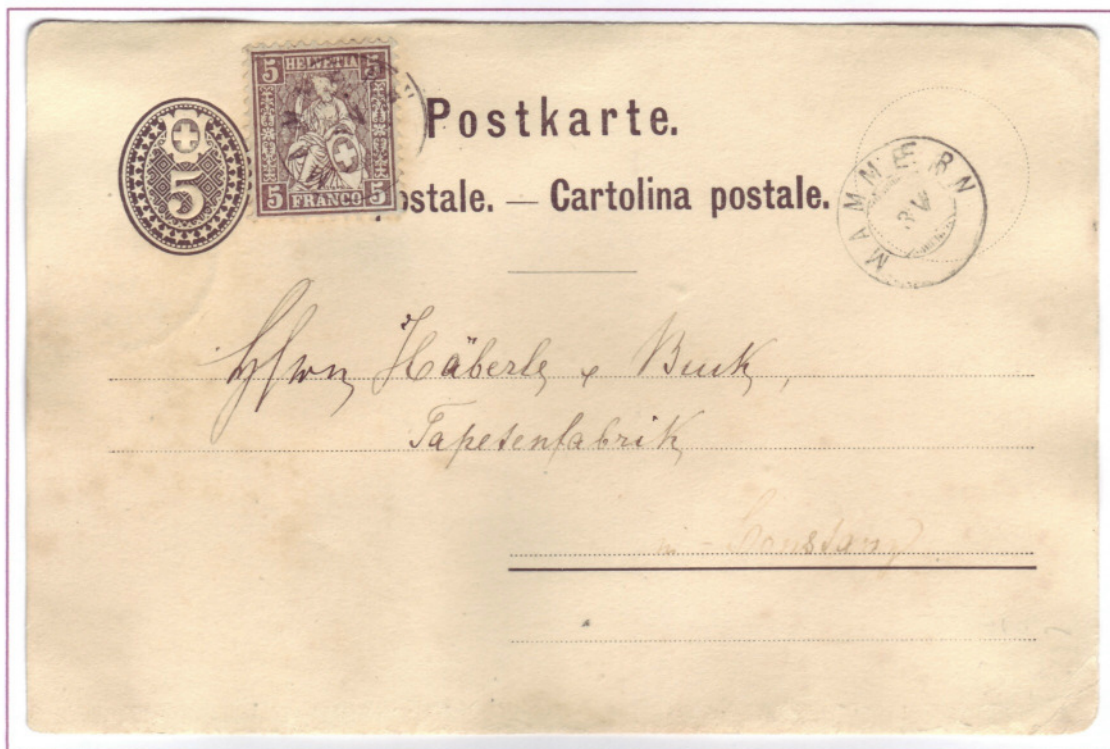 5 HELVETIA 5
5 FRANCO 5
5
Postkarte.
ostale. — Cartolina postale.
MAMMERN
Häberle & Buck,
Tapetenfabrik
in Constanz